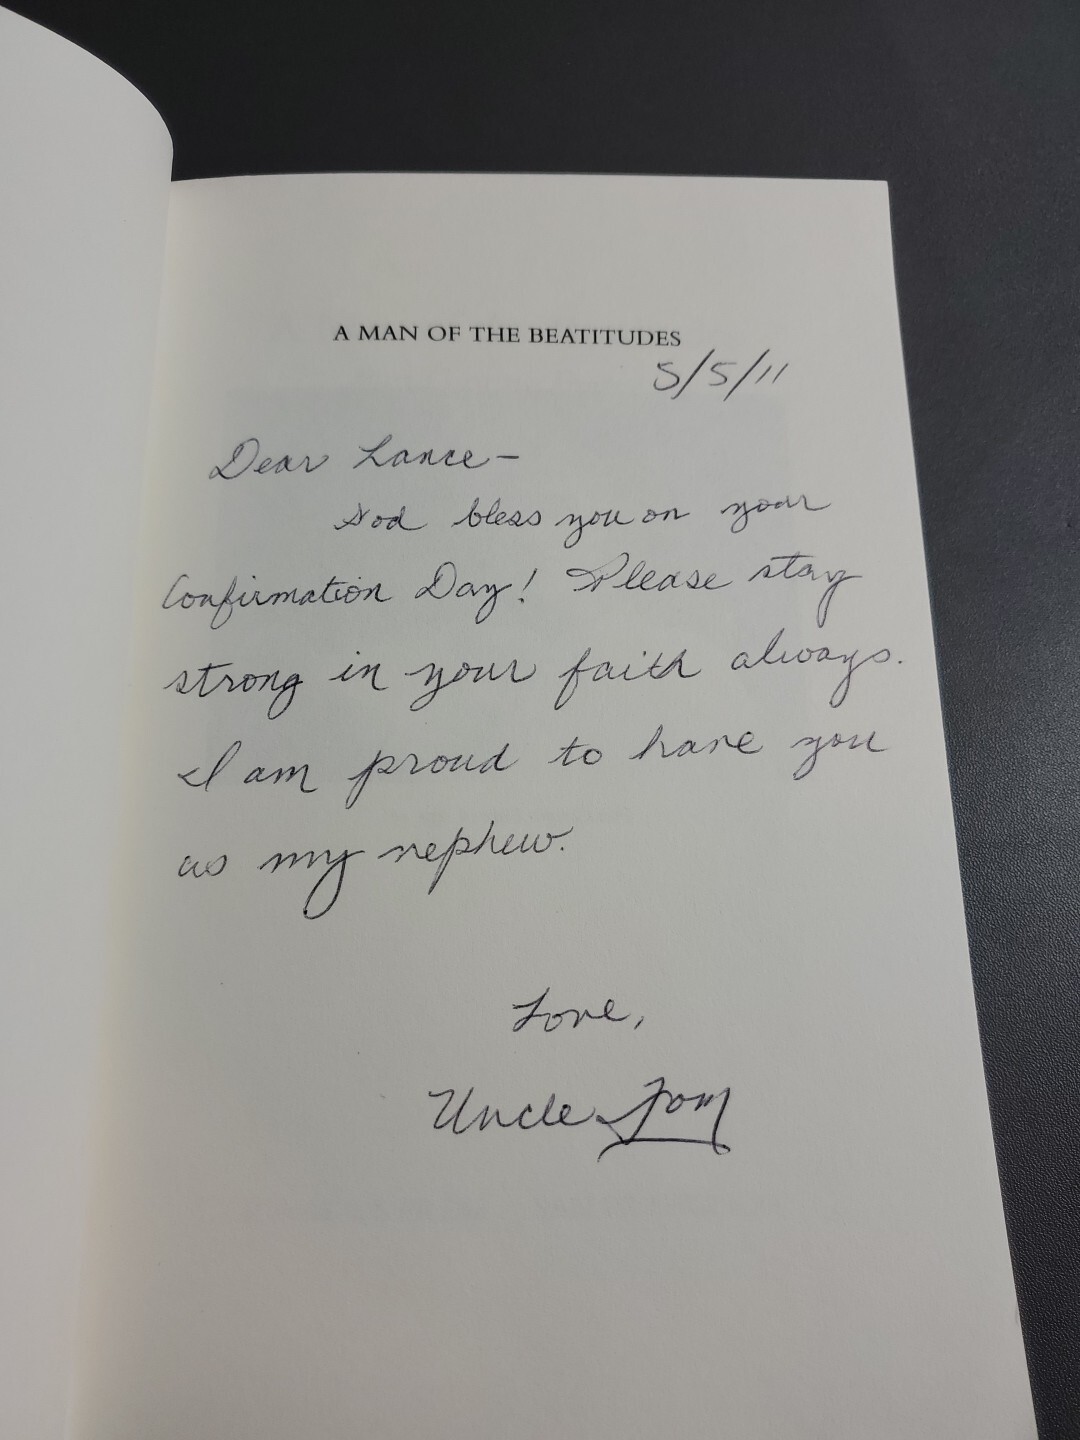 A MAN OF THE BEATITUDES
5/5/11
Dear Lance-
God bless you on your
Confirmation Day! Please stay
strong in your faith always.
I am proud to have you
as my nephew.
Love,
Uncle Tom